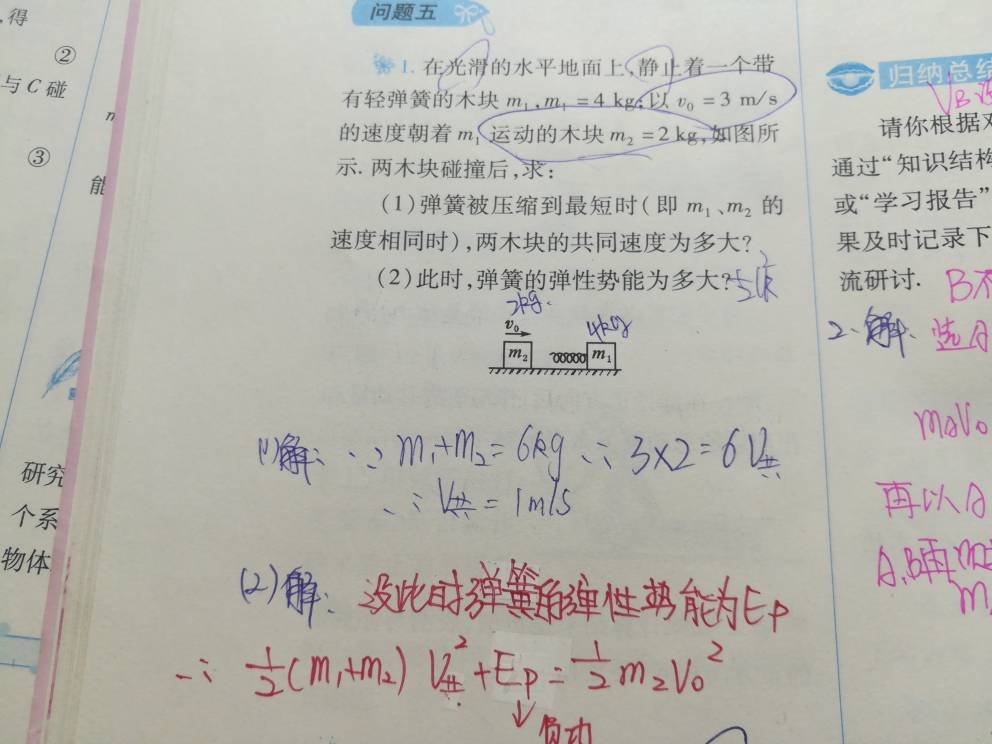 ,得
②
与 C 碰
③
能
研究
个系
物体
问题五
1. 在光滑的水平地面上,静止着一个带
有轻弹簧的木块 m₁,m₁ = 4 kg;以 v₀ = 3 m/s
的速度朝着 m₁ 运动的木块 m₂ = 2 kg,如图所
示. 两木块碰撞后,求:
(1)弹簧被压缩到最短时(即 m₁、m₂ 的
速度相同时),两木块的共同速度为多大?
(2)此时,弹簧的弹性势能为多大?
2kg.
4kg
v₀
m₂
m₁
(1)解: ∵ m₁+m₂=6kg ∴ 3×2=6V共
∴ V共 = 1m/s
(2)解: 设此时弹簧的弹性势能为Ep
∴ ½(m₁+m₂) V共²+Ep=½m₂V₀²
↓负功
归纳总结
请你根据对
通过“知识结构
或“学习报告”
果及时记录下
流研讨.
2、解: 选A
mAV₀
再以A
A、B再